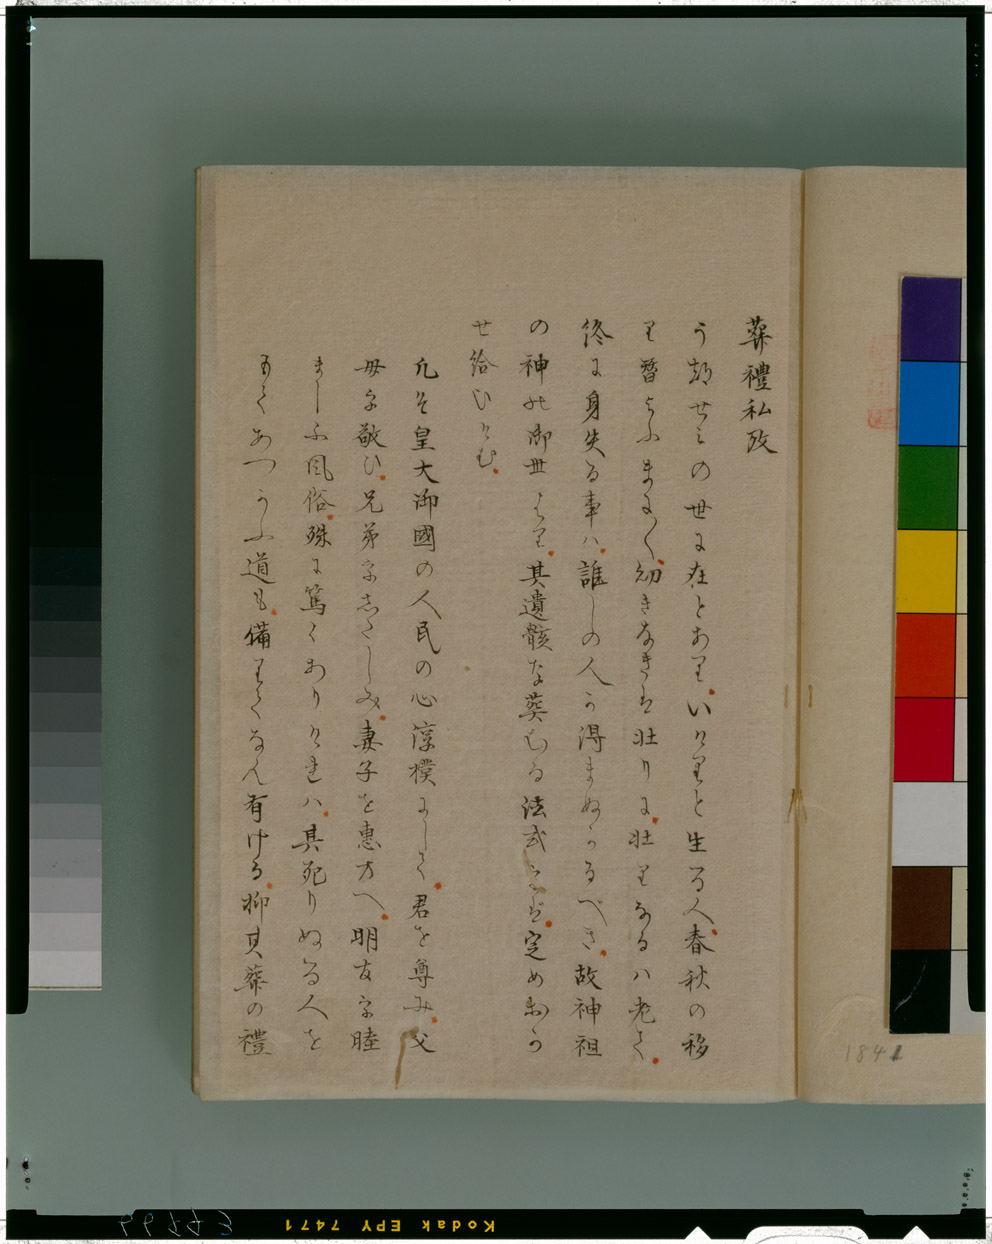 葬禮私攷
う都せミの世に在とある。いけると生る人。春秋の移
り替らふまに〱。幼きなきは壮りに。壮りなるハ老て。
終に身失る事ハ。誰しの人か得まぬかるべき。故神祖
の神の御世より。其遺骸を葬むる法式をば。定め出か
せ給ひけむ。
凡そ皇大御國の人民の心淳樸にして。君を尊み。父
母を敬ひ。兄弟をしたしみ。妻子を惠方へ。明友を睦
ましふ風俗。殊に篤くありけれハ。其死りぬる人を
もてあつかふ道も。備りてなん有ける。抑其葬の禮
184
Kodak EPY 7471